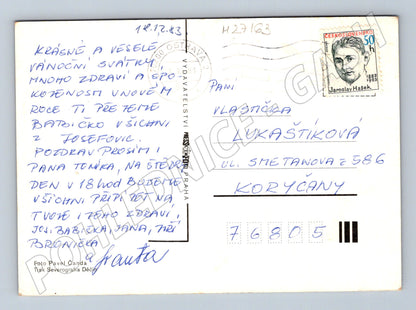 18.12.83
H27163
KRÁSNÉ A VESELÉ
VÁNOČNÍ SVÁTKY
MNOHO ZDRAVÍ A SPO
KOJENOSTI V NOVÉM
ROCE TI PŘEJEME
BATOLIČKO VŠICHNI
Z JOSEFOVIC.
POZDRAV PROSÍM I
PANA TONÍKA, NA ŠTĚDRÝ
DEN V 18 HOD BUDEME
VŠICHNI PŘIPÍJET NA
TVOJE I JEHO ZDRAVÍ
JOS. BABIČKA, JANA, JIŘÍ
a Franta
Foto Pavel Ganda
Tisk Severografia Děčín
VYDAVATELSTVÍ
PRAHA
OSTRAVA
ČESKOSLOVENSKO
50 h
1883
1923
Jaroslav Hašek
PANÍ
VLASTIČKA
LUKAŠTÍKOVÁ
UL. SMETANOVA Č 586
KORYČANY
76805
POHLEDNICE - GASH